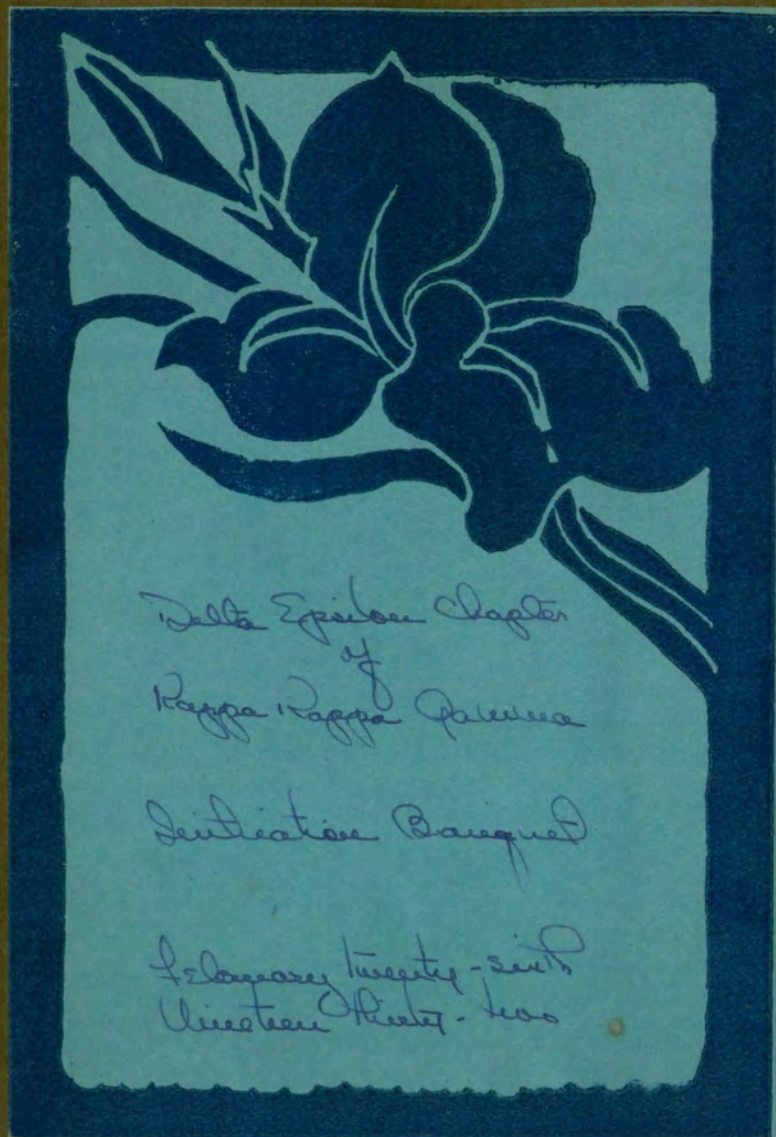 Delta Epsilon Chapter
of
Kappa Kappa Gamma
Initiation Banquet
February twenty-sixth
Nineteen thirty-two